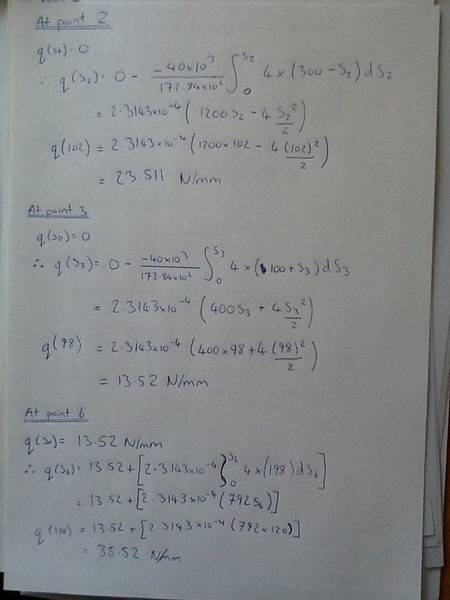 At point 2
q(s₀)=0
∴ q(s₂)= 0 - -40×10³/172.84×10⁶ ∫₀^S₂ 4×(300-S₂)dS₂
= 2.3143×10⁻⁴ (1200S₂ - 4S₂²/2)
q(102) = 2.3143×10⁻⁴ (1200×102 - 4(102)²/2)
= 23.511 N/mm
At point 3
q(s₀)=0
∴ q(s₃)= 0 - -40×10³/172.84×10⁶ ∫₀^S₃ 4×(100+S₃)dS₃
= 2.3143×10⁻⁴ (400S₃ + 4S₃²/2)
q(98) = 2.3143×10⁻⁴ (400×98+4(98)²/2)
= 13.52 N/mm
At point 6
q(s₀)= 13.52 N/mm
∴ q(s₆)= 13.52+[2.3143×10⁻⁴ ∫₀^S₆ 4×(198)dS₆]
= 13.52+[2.3143×10⁻⁴(792S₆)]
= 13.52+[2.3143×10⁻⁴(792×120)]
= 35.52 N/mm